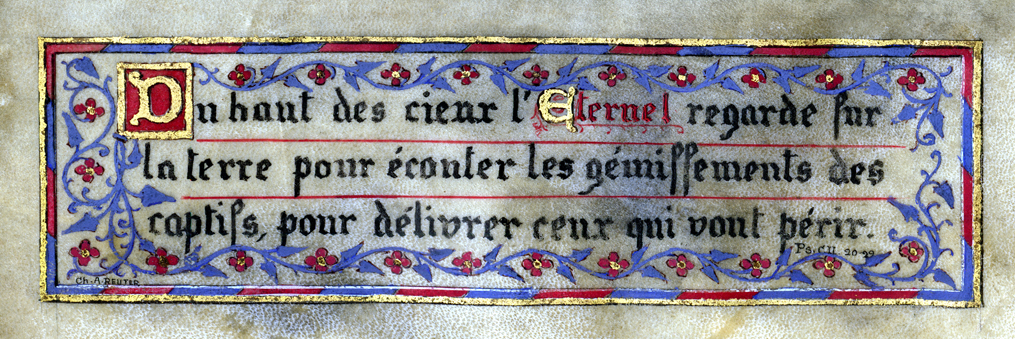 Du haut des cieux l'Eternel regarde sur
la terre pour écouter les gémissements des
captifs, pour délivrer ceux qui vont périr.
Ps. CII 20-29
Ch. A. REUTER